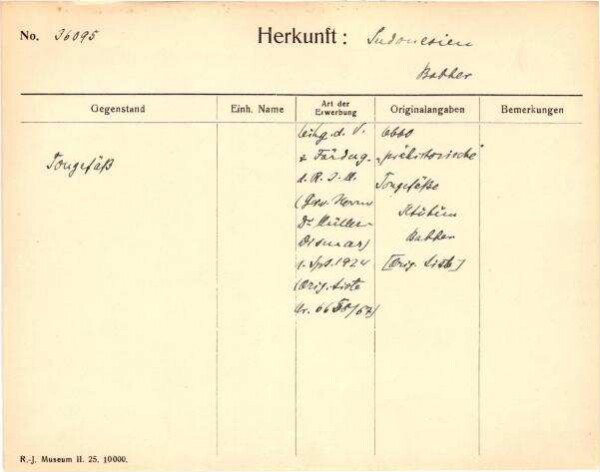 No. 36095
Herkunft: Indonesien
Babber
Gegenstand
Einh. Name
Art der Erwerbung
Originalangaben
Bemerkungen
Tongefäß
d. V.
z. Förderg.
d. R. J. M.
(Herrn
Dr Müller
Wismar)
1. Spt. 1924
(Orig. Liste
Nr. 6650/58)
"prähistorische"
Tongefäße
Babber
[Orig. Liste]
R.-J. Museum II. 25. 10000.